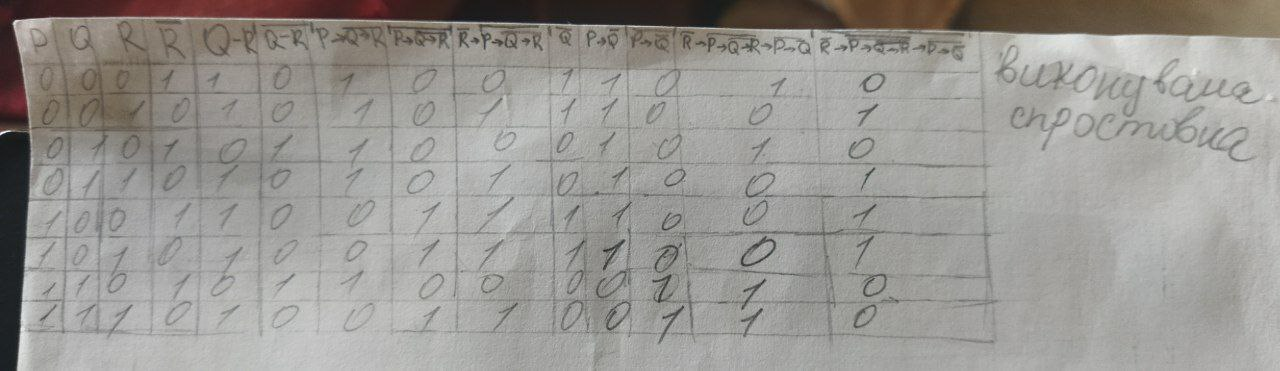 P Q R R̅ Q→R Q̅→̅R̅ P→Q̅→̅R̅ P̅→̅Q̅→̅R̅ R̅→P̅→̅Q̅→̅R̅ Q̅ P→Q̅ P̅→̅Q̅ R̅→P→Q→R→P→Q R̅→P→Q→R→P→Q
0 0 0 1 1 0 1 0 0 1 1 0 1 0
0 0 1 0 1 0 1 0 1 1 1 0 0 1
0 1 0 1 0 1 1 0 0 0 1 0 1 0
0 1 1 0 1 0 1 0 1 0 1 0 0 1
1 0 0 1 1 0 0 1 1 1 1 0 0 1
1 0 1 0 1 0 0 1 1 1 1 0 0 1
1 1 0 1 0 1 1 0 0 0 0 1 1 0
1 1 1 0 1 0 0 1 1 0 0 1 1 0
виконувана.
спростовна